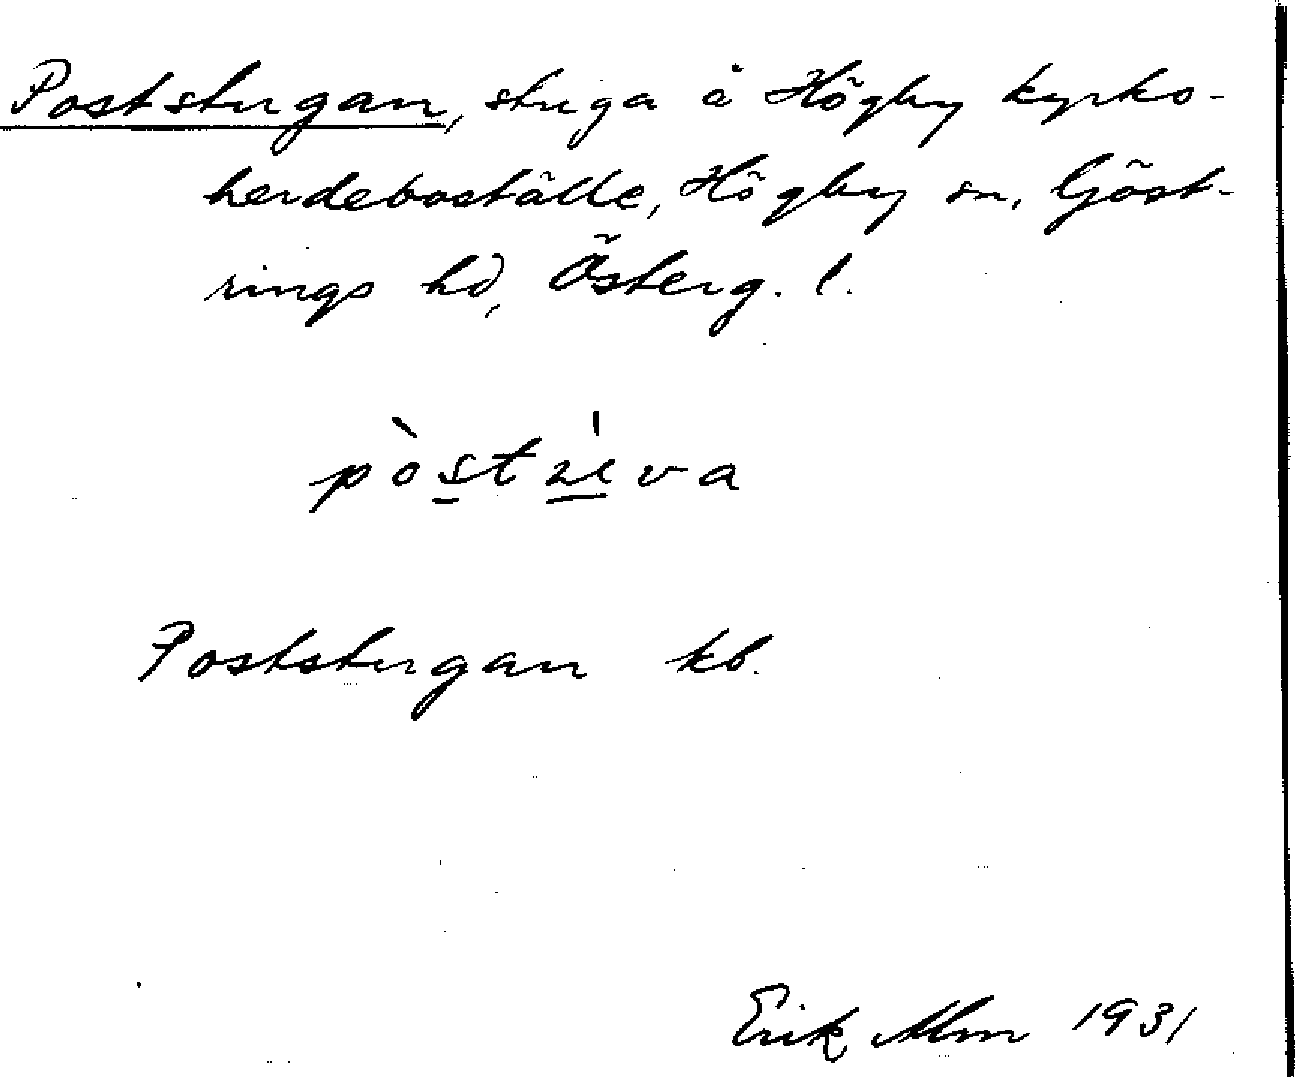 Poststugan, stuga å Högby kyrko-
herdeboställe, Högby sn, Göst-
rings hd, Österg. l.
Poststugan kb.
Erik Alm 1931